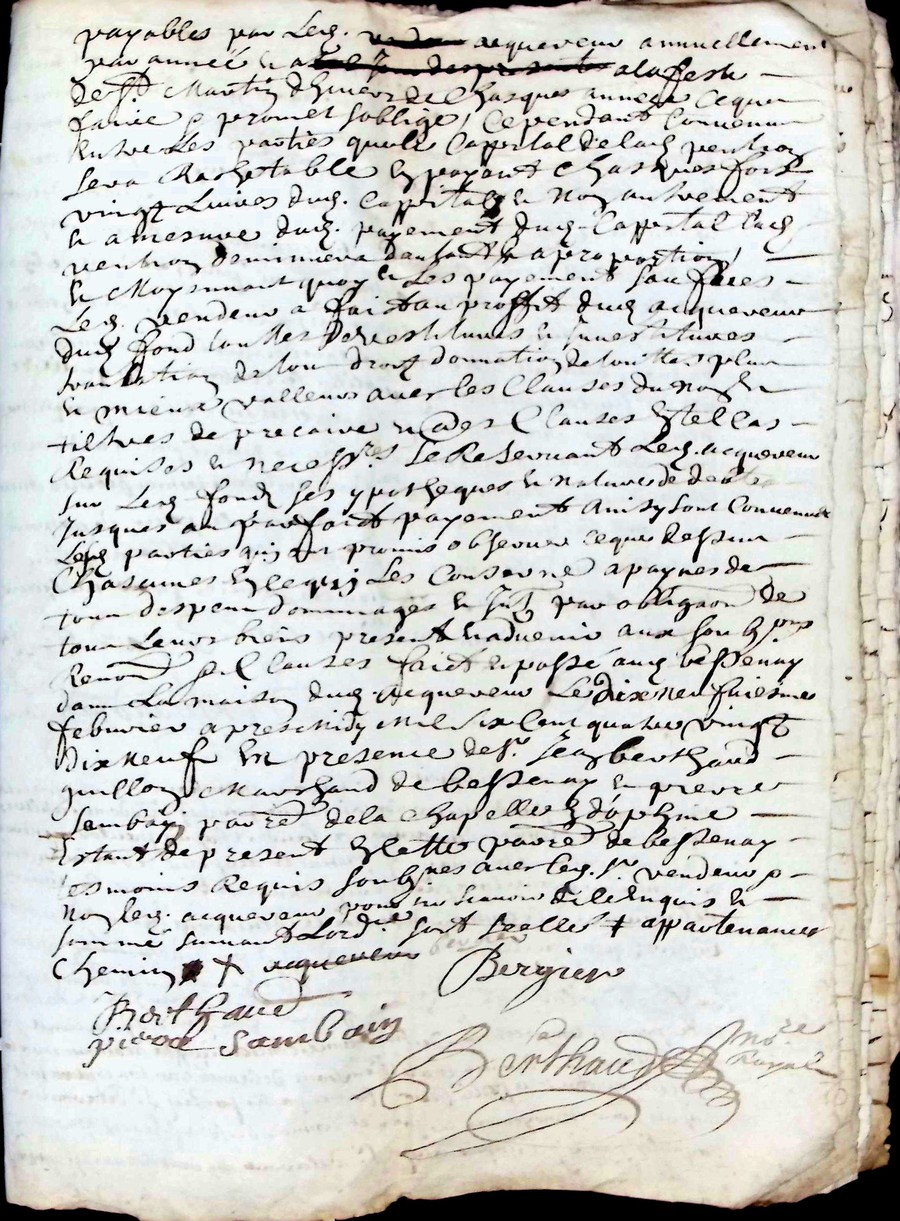 payables par Led. acquereur annuellement
par année a la feste
de St Martin dhiver de Chasques année Ceque
faire promet soblige / Cependant Convenu
Entre Les parties que le Cappital de lad. pention
sera Rachetable En payant Chasques fois
vingt Livres dud. Cappital & Non autrement
& a mesure dud. payement dud. Cappital lad.
pention diminuera dautant & a proportion /
& Moyennant quoy & Les payement sau faices
Led. vendeur a faict au proffit dud. acquereur
dud. fond touttes Devestitures & Investitures
translation de tou droit donnation de touttes plus
& mieux valleurs avec les Clauses du Nom &
tiltres de precaire & aües Clauses En tel Cas
Requises & necessres Se Reservant Led. acquereur
sur Led. fond ses ypotheques & Nature de debte
Jusques au parfaict payement Ainsy sont Convenues
Lesd. parties qui ont promis observer ceque dessus
Chascunes En ce qui Les Conserne a paynes de
tous despens dommages & Intz par obligaon de
tous Leurs biens present & advenir aux soubzmns
Renonon & Clauses faict & passé aud. bessenay
dans La maison dud. acquereur Le Dix neufiesme
febvrier apres midy mil six Cent quatre vingt
Dix neuf En presence de Sr Jean berthaud
guillon Marchand de bessenay & pierre
Sambain parre de la chapelle En dophine
Estant de present En cette parre de bessenay
tesmoins Requis soubznes avec led. Sr vendeur &
Non led. acquereur pour ne scavoir de ce Enquis &
sommé suivant Lordce sont seelles + appartenances
Chemin + acquereur
Bergier
Berthaud
pierre Sambain
Berthaud nore
Royal